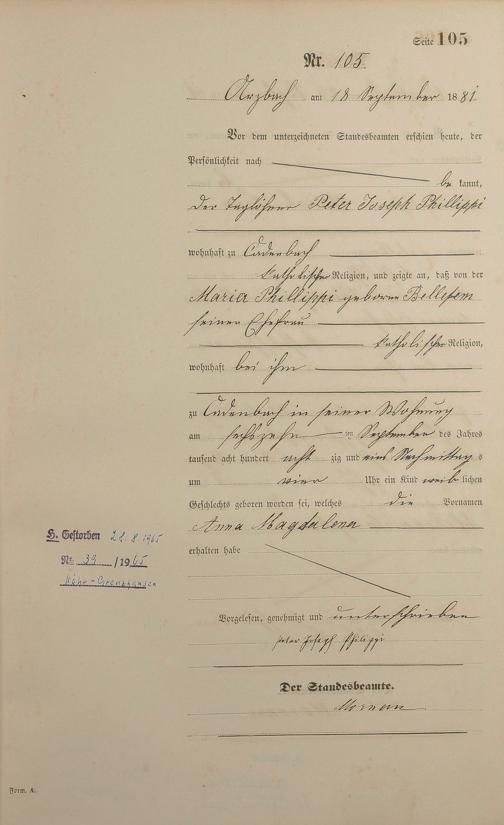 Seite 105
Nr. 105.
Arzbach am 18 September 1881
Vor dem unterzeichneten Standesbeamten erschien heute, der
Persönlichkeit nach
be kannt,
der Taglöhner Peter Joseph Phillippi
wohnhaft zu Cadenbach
katholischer Religion, und zeigte an, daß von der
Maria Phillippi geborne Bellefem
seiner Ehefrau
katholischer Religion,
wohnhaft bei ihm
zu Cadenbach in seiner Wohnung
am sechszehn ten September des Jahres
tausend acht hundert acht zig und eins Nachmittag s
um vier Uhr ein Kind weib lichen
Geschlechts geboren worden sei, welches die Vornamen
Anna Magdalena
erhalten habe
H. Gestorben 21.8.1965
Nr. 39 /1965
Höhr-Grenzhausen
Vorgelesen, genehmigt und unterschrieben
Peter Joseph Philippi
Der Standesbeamte.
Form. A.